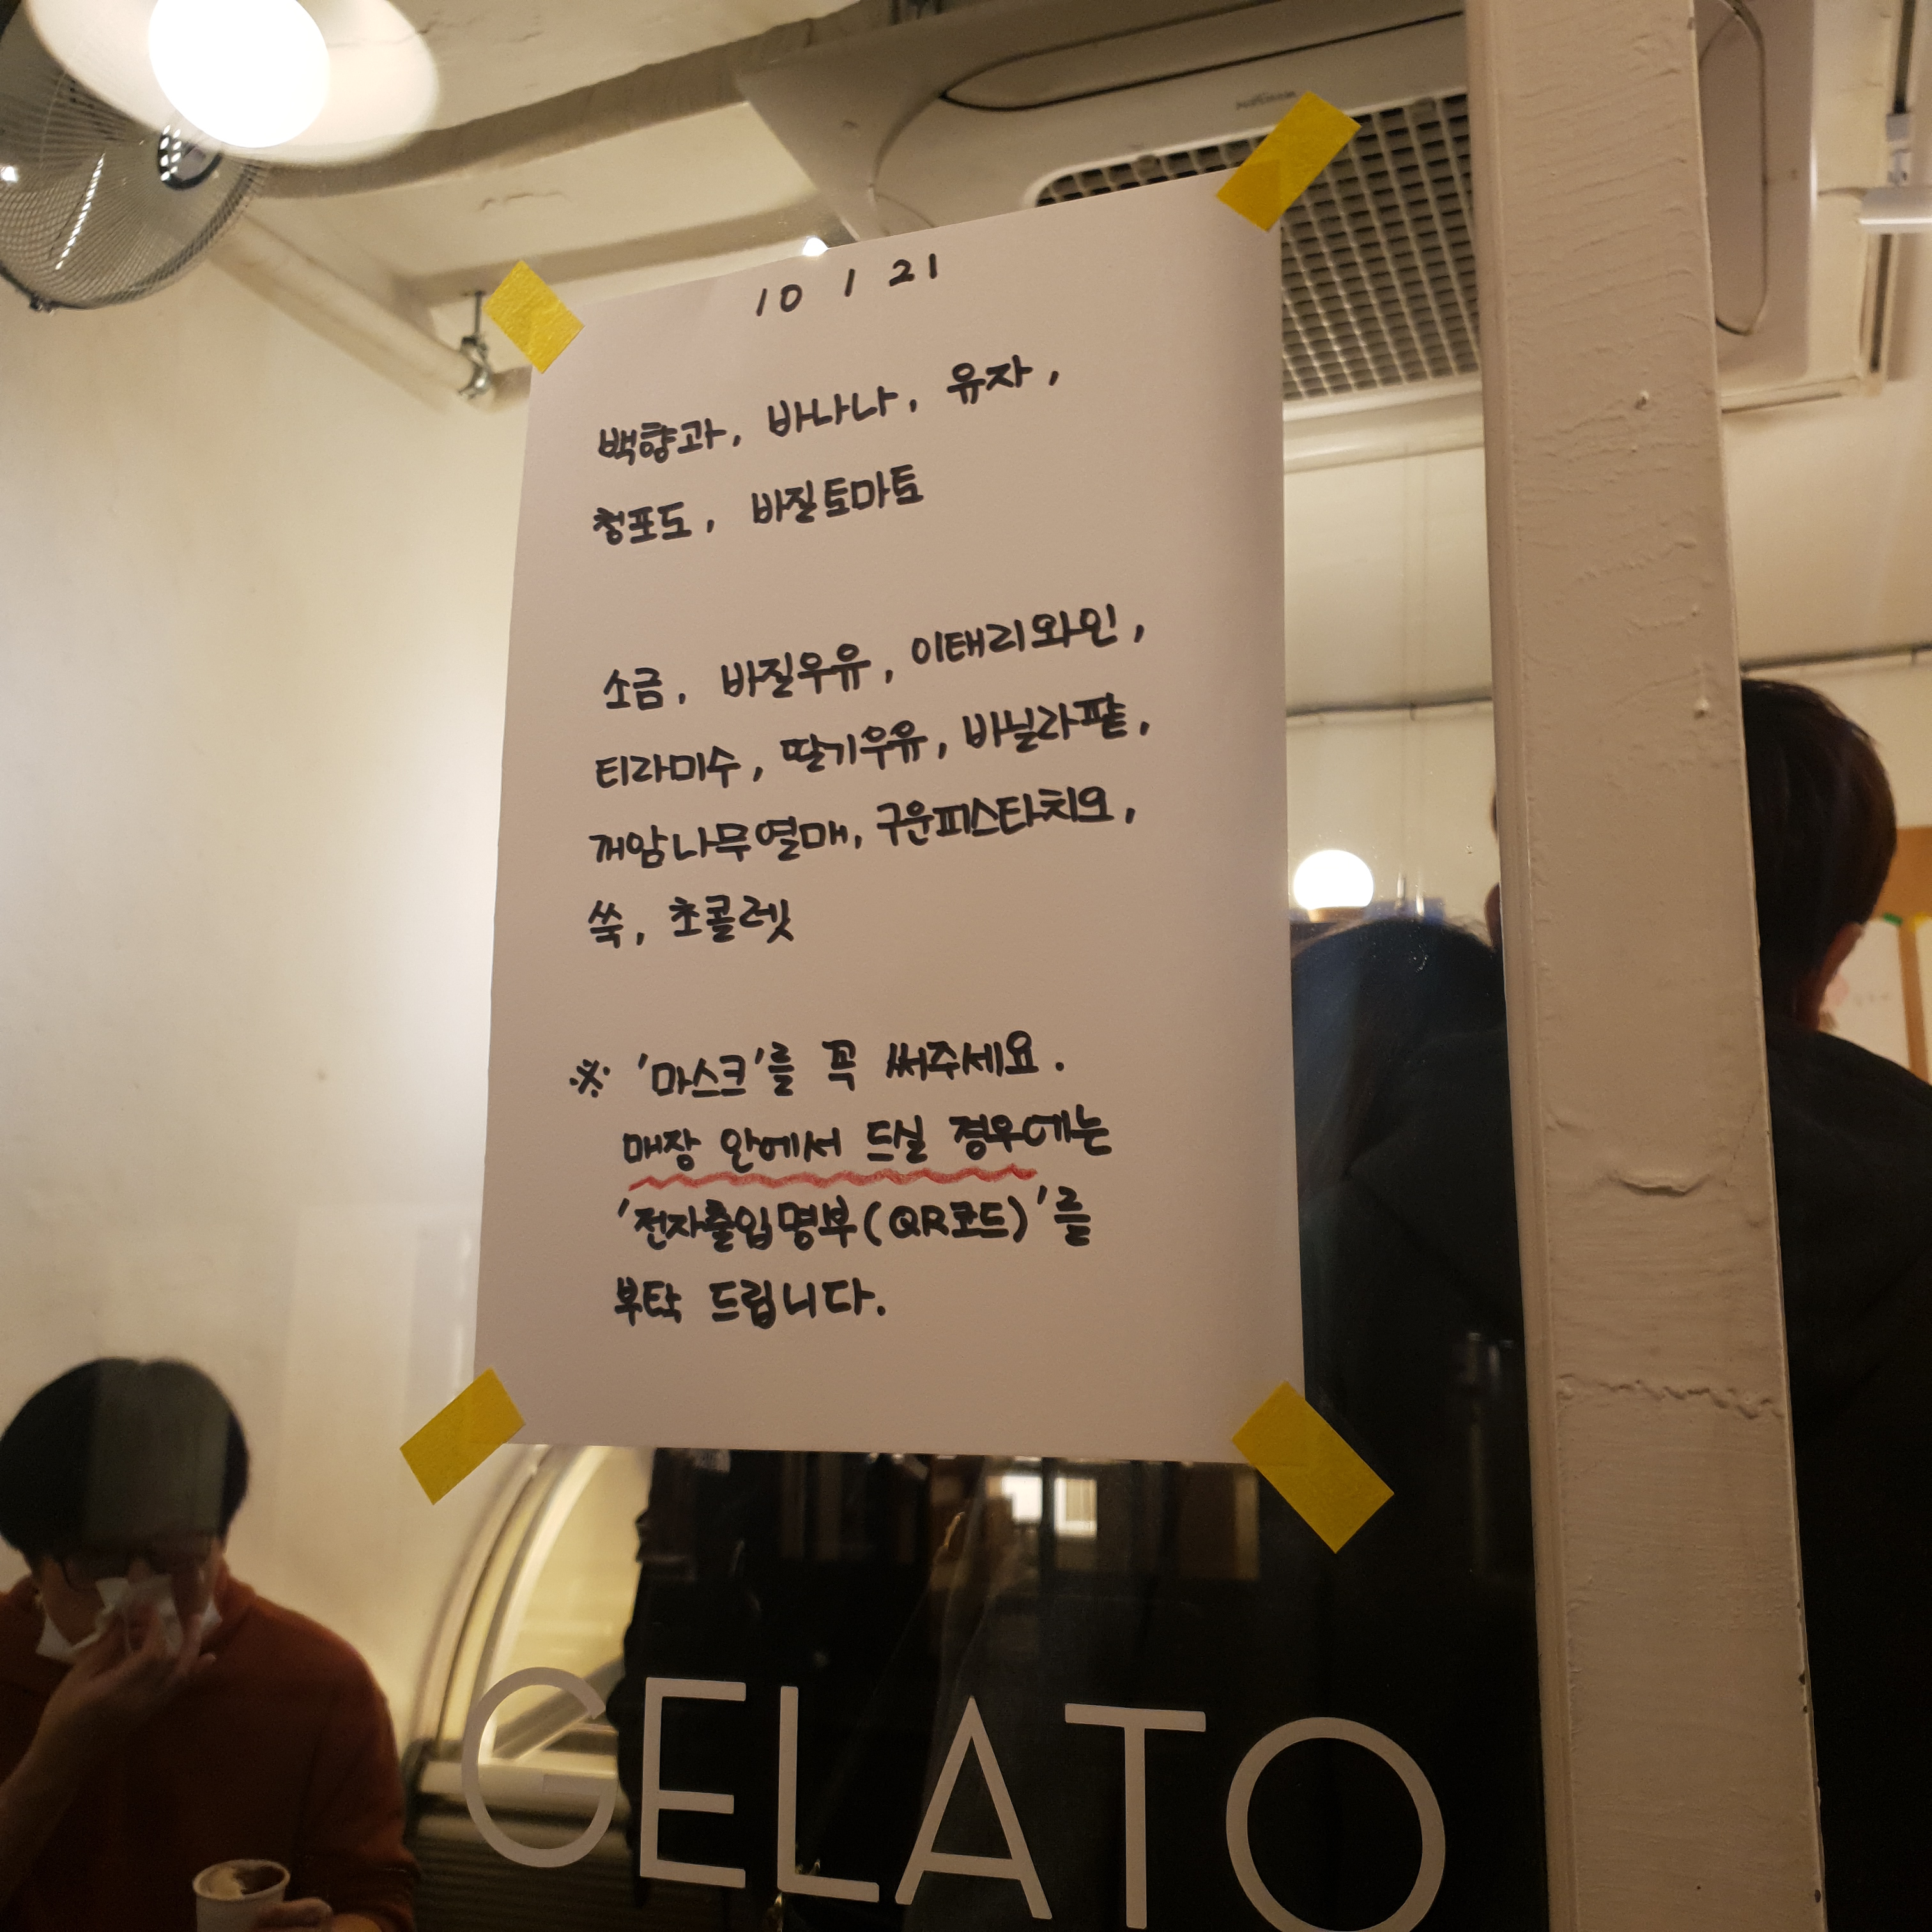 10 / 21
백향과, 바나나, 유자,
청포도, 바질토마토
소금, 바질우유, 이태리와인,
티라미수, 딸기우유, 바닐라팥,
깨암나무열매, 구운피스타치오,
쑥, 초콜렛
※ '마스크'를 꼭 써주세요.
매장 안에서 드실 경우에는
'전자출입명부(QR코드)'를
부탁 드립니다.
GELATO